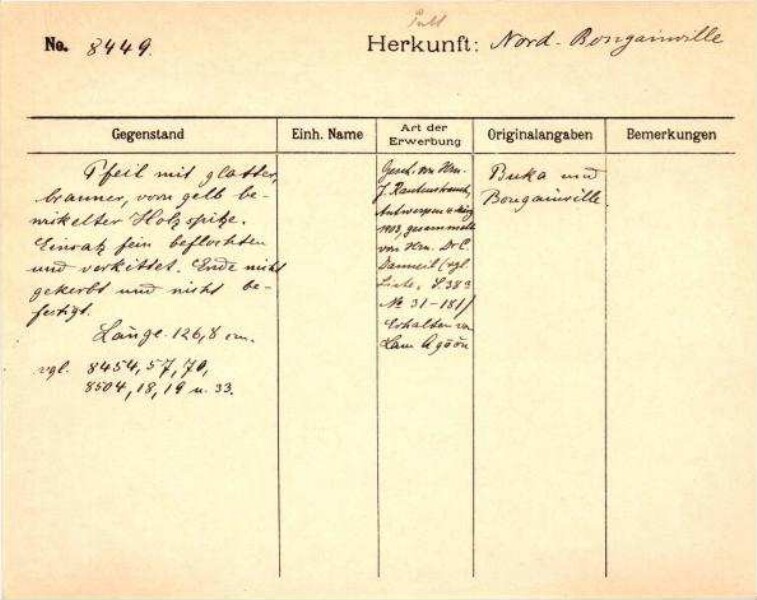 No. 8449. Herkunft: Nord-Bougainville
Gegenstand Einh. Name Art der Erwerbung Originalangaben Bemerkungen
Pfeil mit glatter,
brauner, vorn gelb be-
wickelter Holzspitze.
Einsatz fein beflochten
und verkittet. Ende nicht
gekerbt und nicht be-
festigt.
Länge 126,8 cm.
vgl. 8454, 57, 70,
8504, 18, 19 u. 33.
Gesch. von Hrn.
J. Rautenstrauch,
Antwerpen
1903, gesammelt
von Hrn. Dr C.
Danneil (vgl.
Liste, S. 383
No 31-181)
Erhalten von
Buka und
Bougainville.